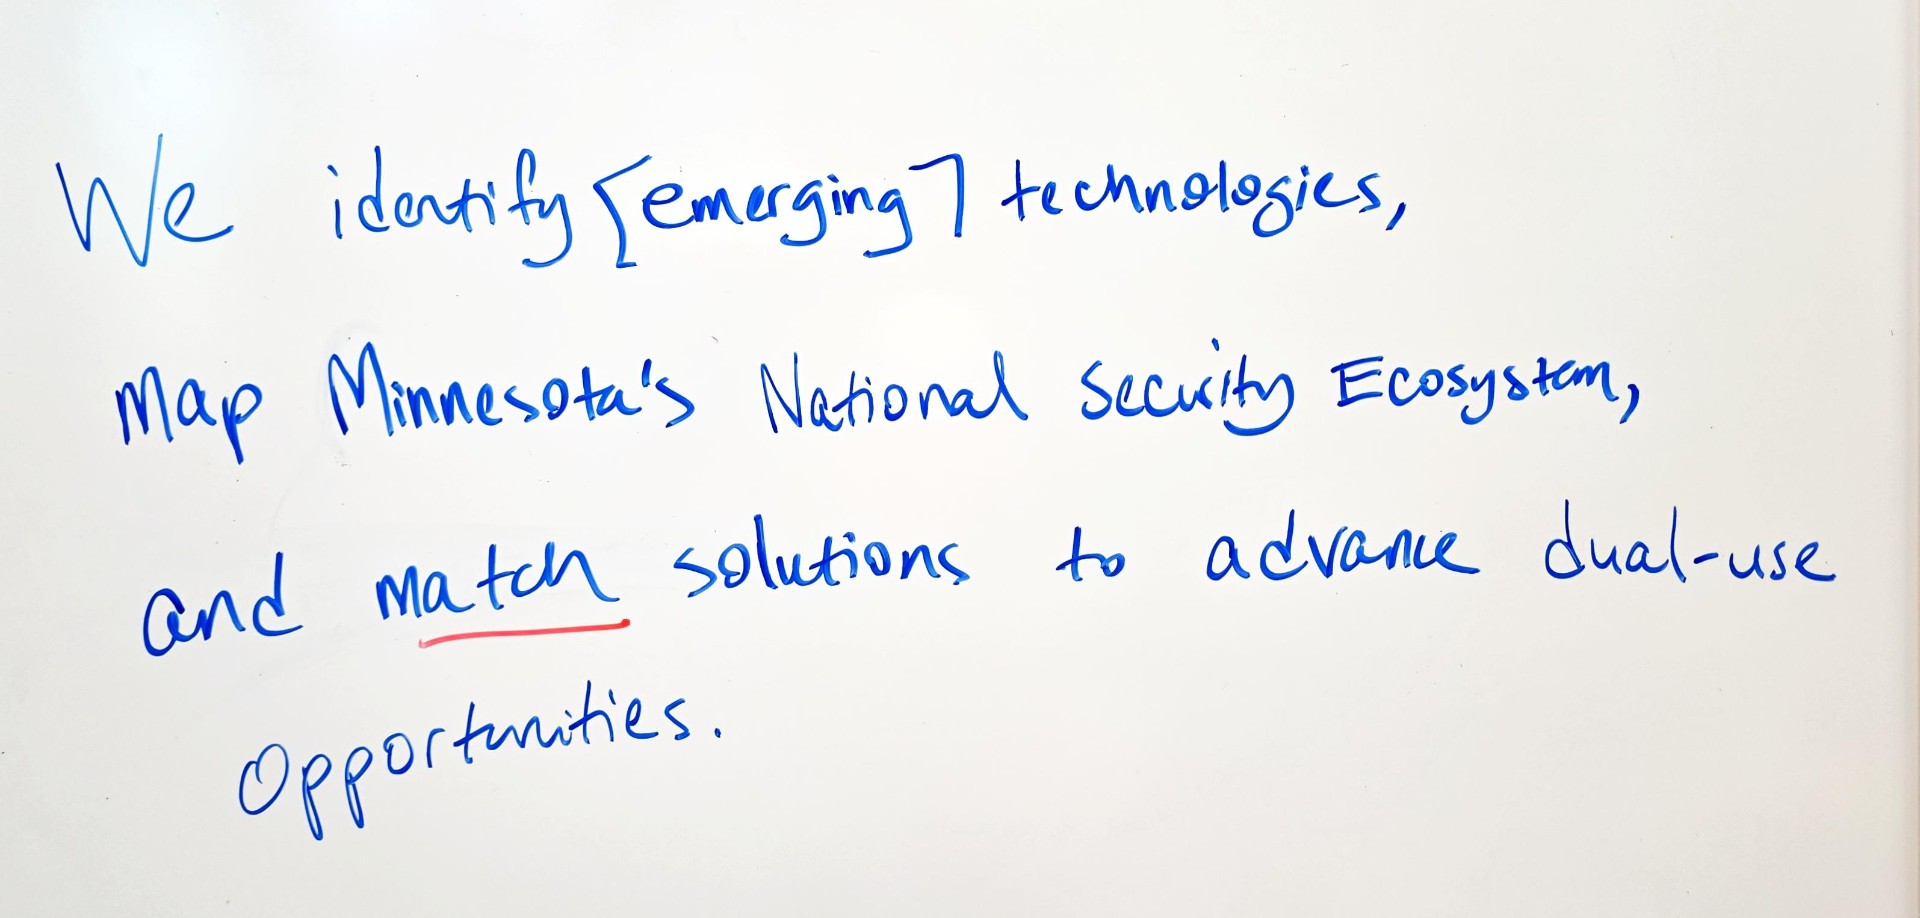 We identify [emerging] technologies,
Map Minnesota's National Security Ecosystem,
and match solutions to advance dual-use
Opportunities.